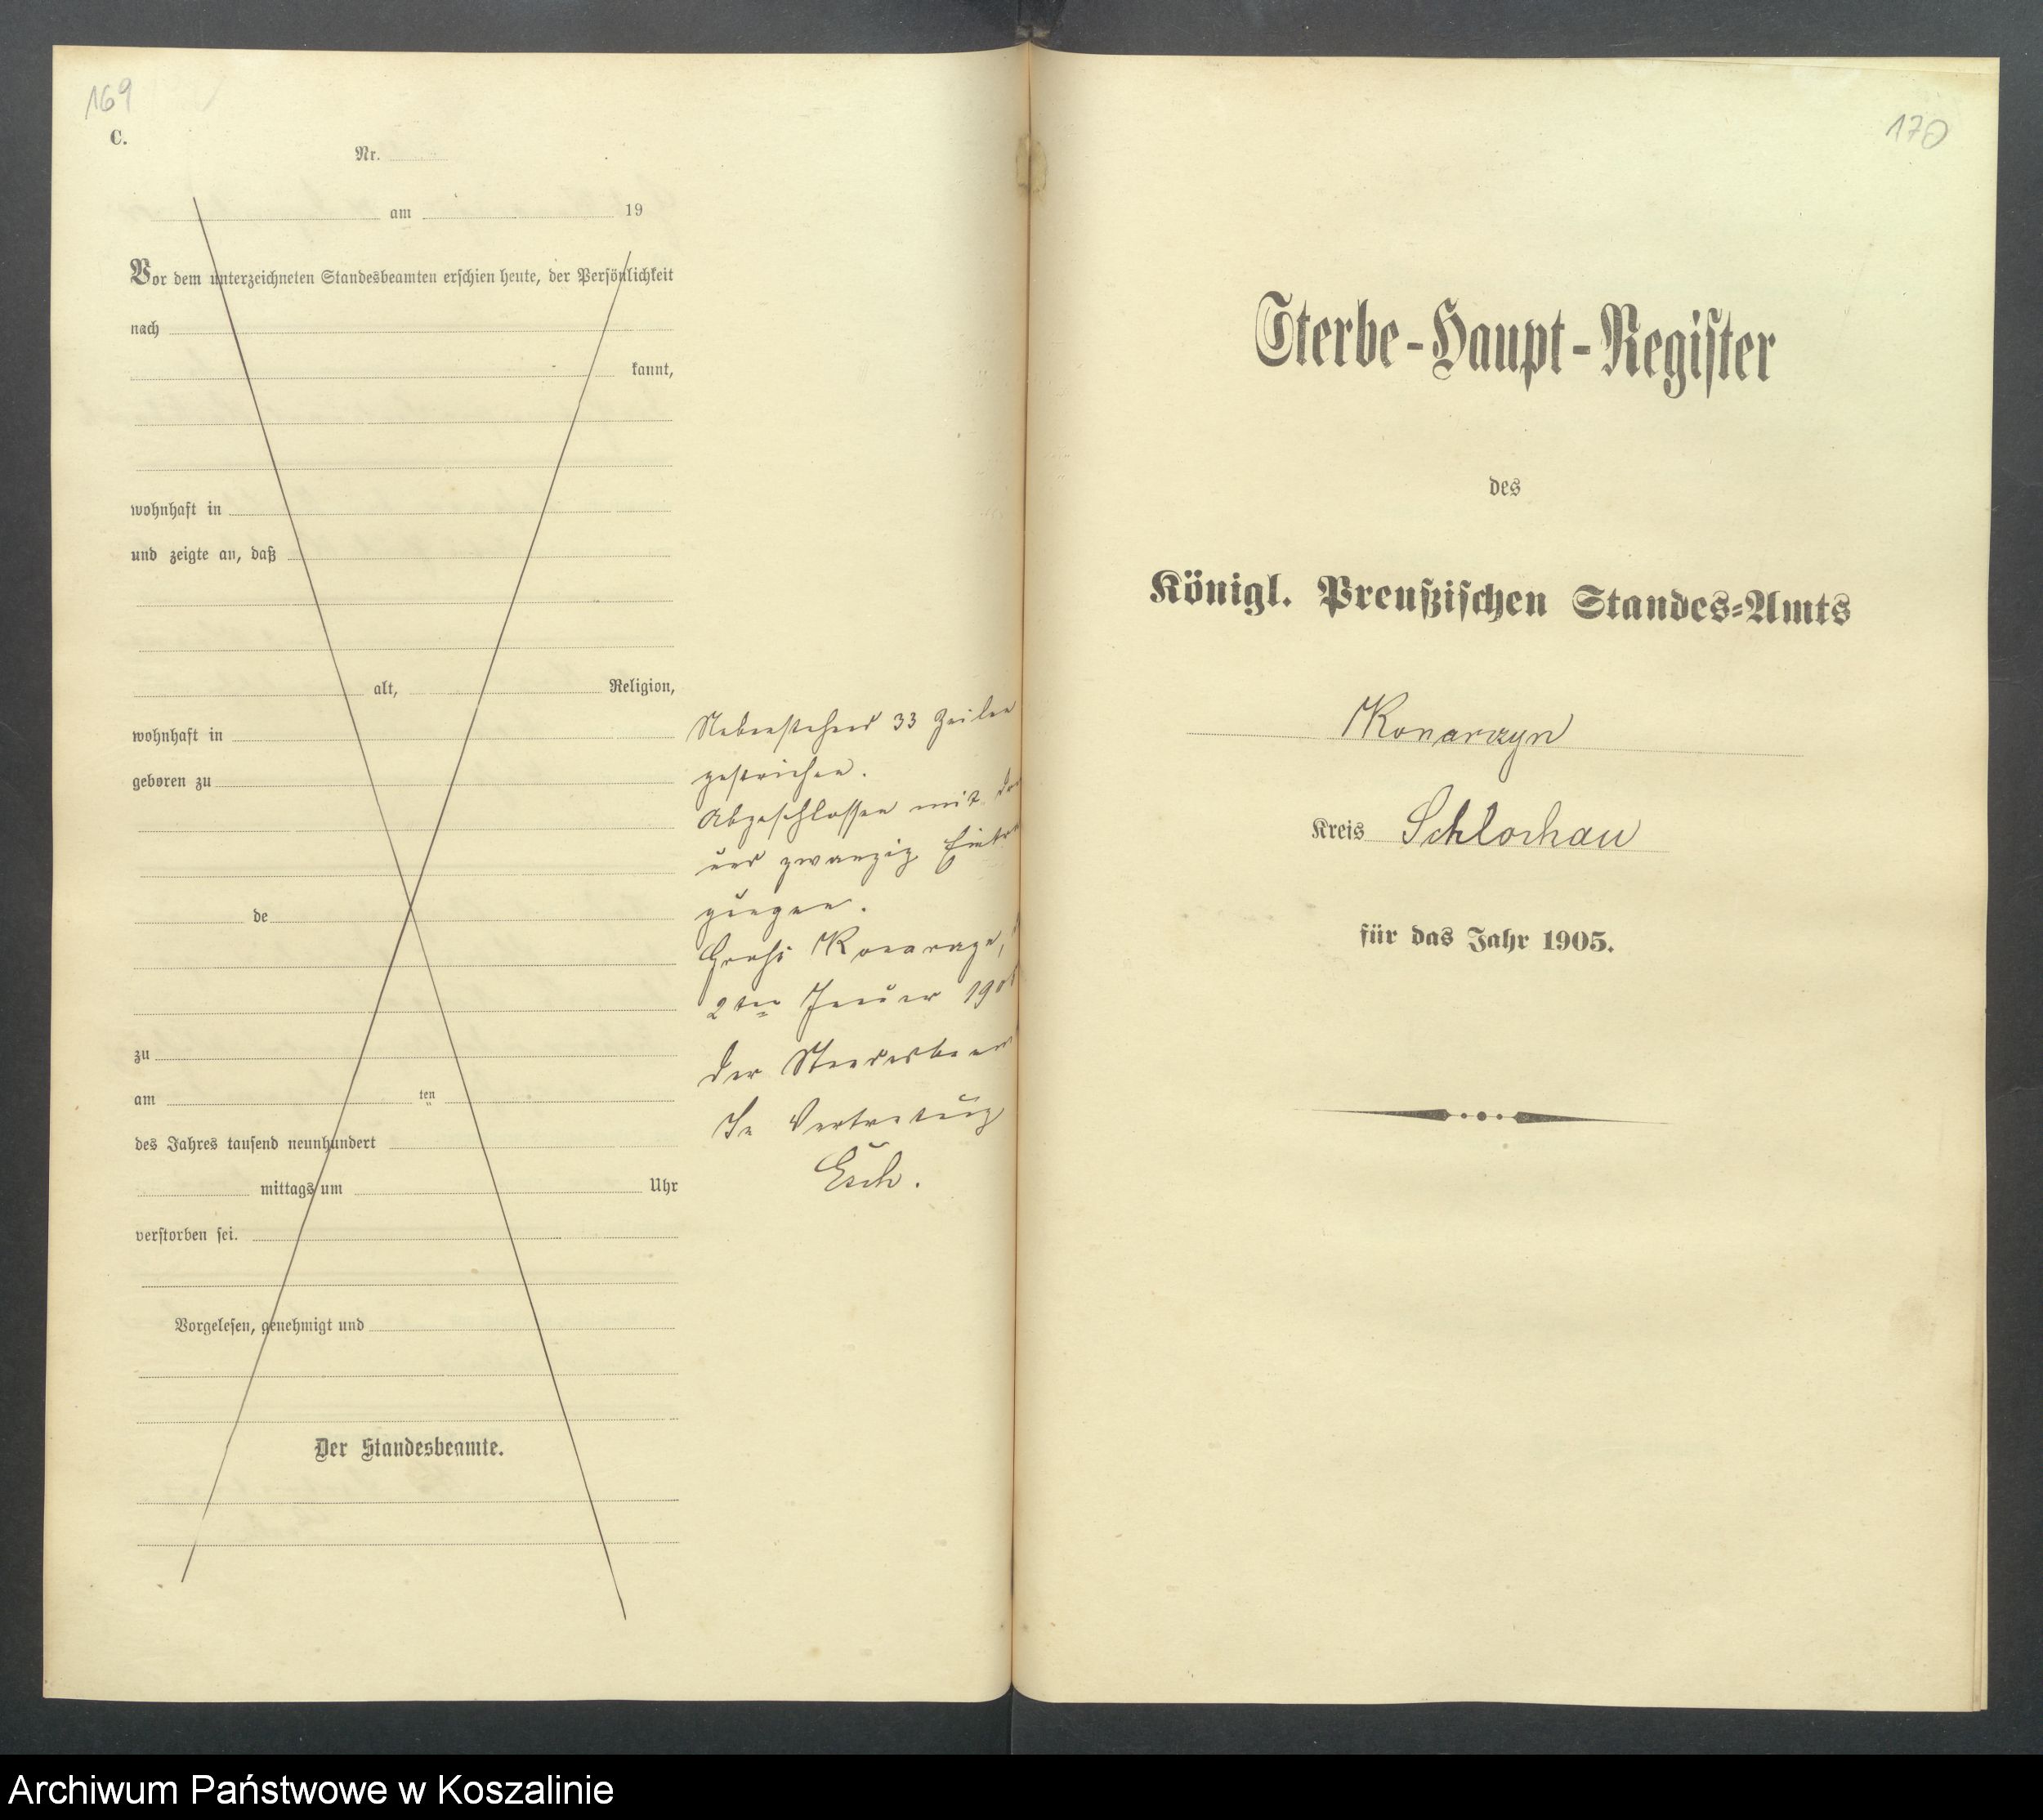 169
C.
Nr.
am 19
Vor dem unterzeichneten Standesbeamten erschien heute, der Persönlichkeit
nach
kannt,
wohnhaft in
und zeigte an, daß
alt, Religion,
wohnhaft in
geboren zu
de
zu
am ten
des Jahres tausend neunhundert
mittags um Uhr
verstorben sei.
Vorgelesen, genehmigt und
Der Standesbeamte.
Nebenstehend 33 Zeilen
gestrichen.
Abgeschlossen mit
und zwanzig Eintra
gungen.
Groß Konarzyn,
2ten Januar 190
Der Standesbeam
In Vertretung
Esch.
170
Sterbe-Haupt-Register
des
Königl. Preußischen Standes-Amts
Konarzyn
Kreis Schlochau
für das Jahr 1905.
Archiwum Państwowe w Koszalinie